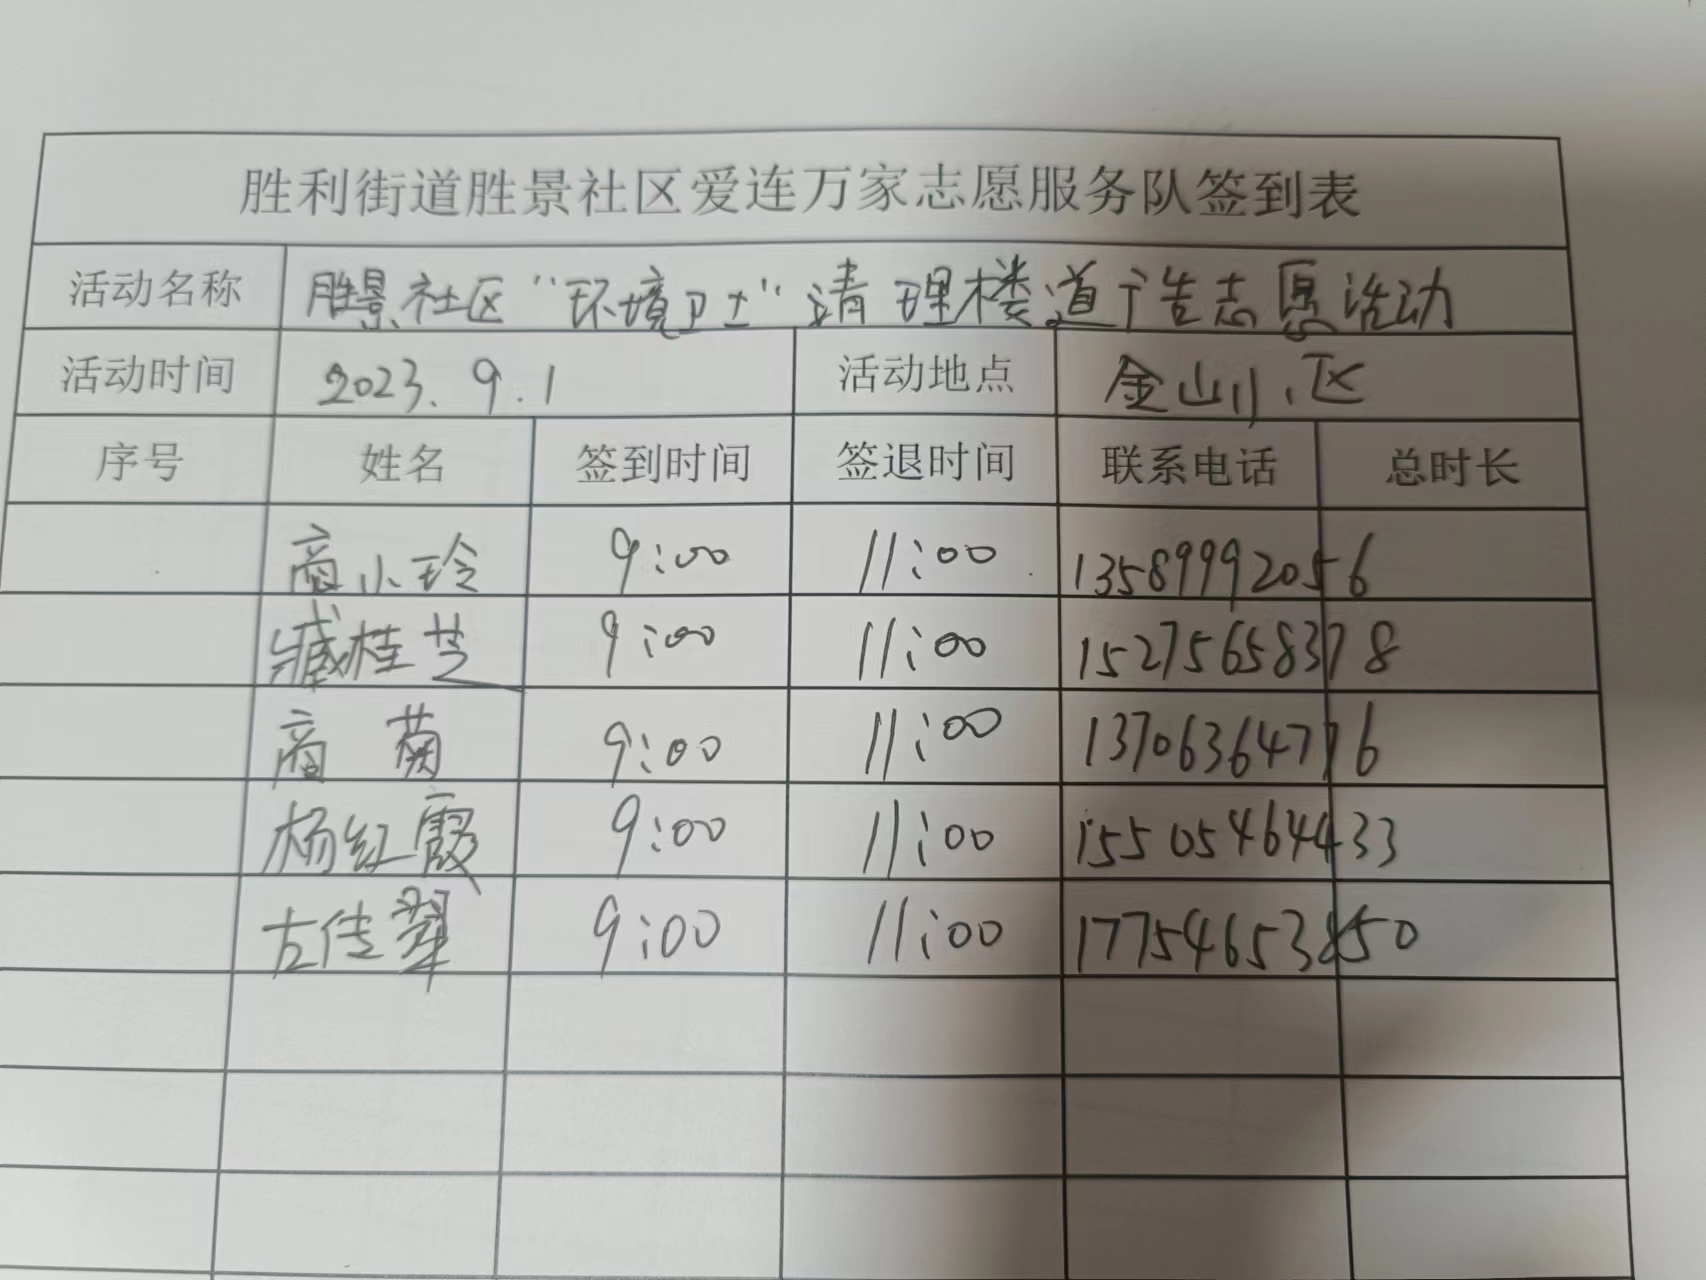 胜利街道胜景社区爱连万家志愿服务队签到表
活动名称 胜景社区“环境卫士”清理楼道广告志愿活动
活动时间 2023.9.1 活动地点 金山小区
序号 姓名 签到时间 签退时间 联系电话 总时长
商小玲 9:00 11:00 13589992056
臧桂芝 9:00 11:00 15275658378
商菊 9:00 11:00 13706364776
杨红霞 9:00 11:00 15505464433
左传翠 9:00 11:00 17754653850